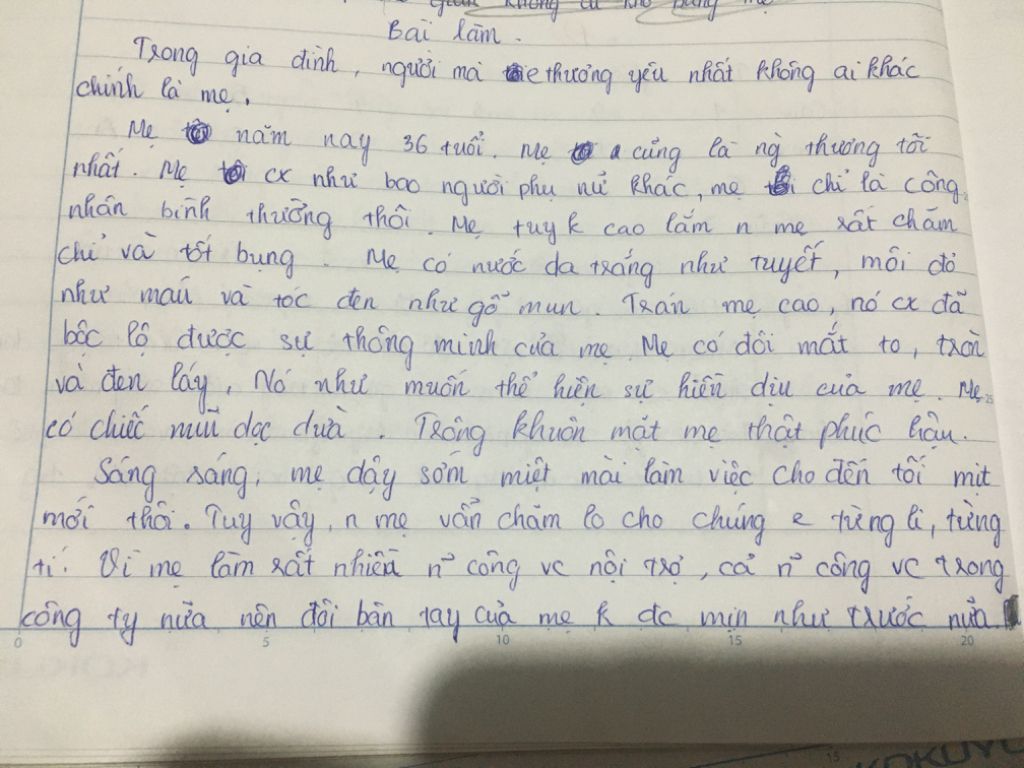 không có khó
Bài làm.
Trong gia đình, người mà e thương yêu nhất không ai khác
chính là mẹ.
Mẹ năm nay 36 tuổi. Mẹ cũng là ng thương tôi
nhất. Mẹ cx như bao người phụ nữ khác, mẹ chỉ là công
nhân bình thường thôi. Mẹ tuy k cao lắm n mẹ rất chăm
chỉ và tốt bụng. Mẹ có nước da trắng như tuyết, môi đỏ
như máu và tóc đen như gỗ mun. Trán mẹ cao, nó cx đã
bộc lộ được sự thông minh của mẹ. Mẹ có đôi mắt to, tròn
và đen láy. Nó như muốn thể hiện sự hiền dịu của mẹ. Mẹ
có chiếc mũi dọc dừa. Trông khuôn mặt mẹ thật phúc hậu.
Sáng sáng, mẹ dậy sớm miệt mài làm việc cho đến tối mịt
mới thôi. Tuy vậy, n mẹ vẫn chăm lo cho chúng e từng li, từng
tí. Vì mẹ làm rất nhiều n~ công vc nội trợ, cả n~ công vc trong
công ty nữa nên đôi bàn tay của mẹ k đc mịn như trước nữa.
0 5 10 15 20
KOKUYO